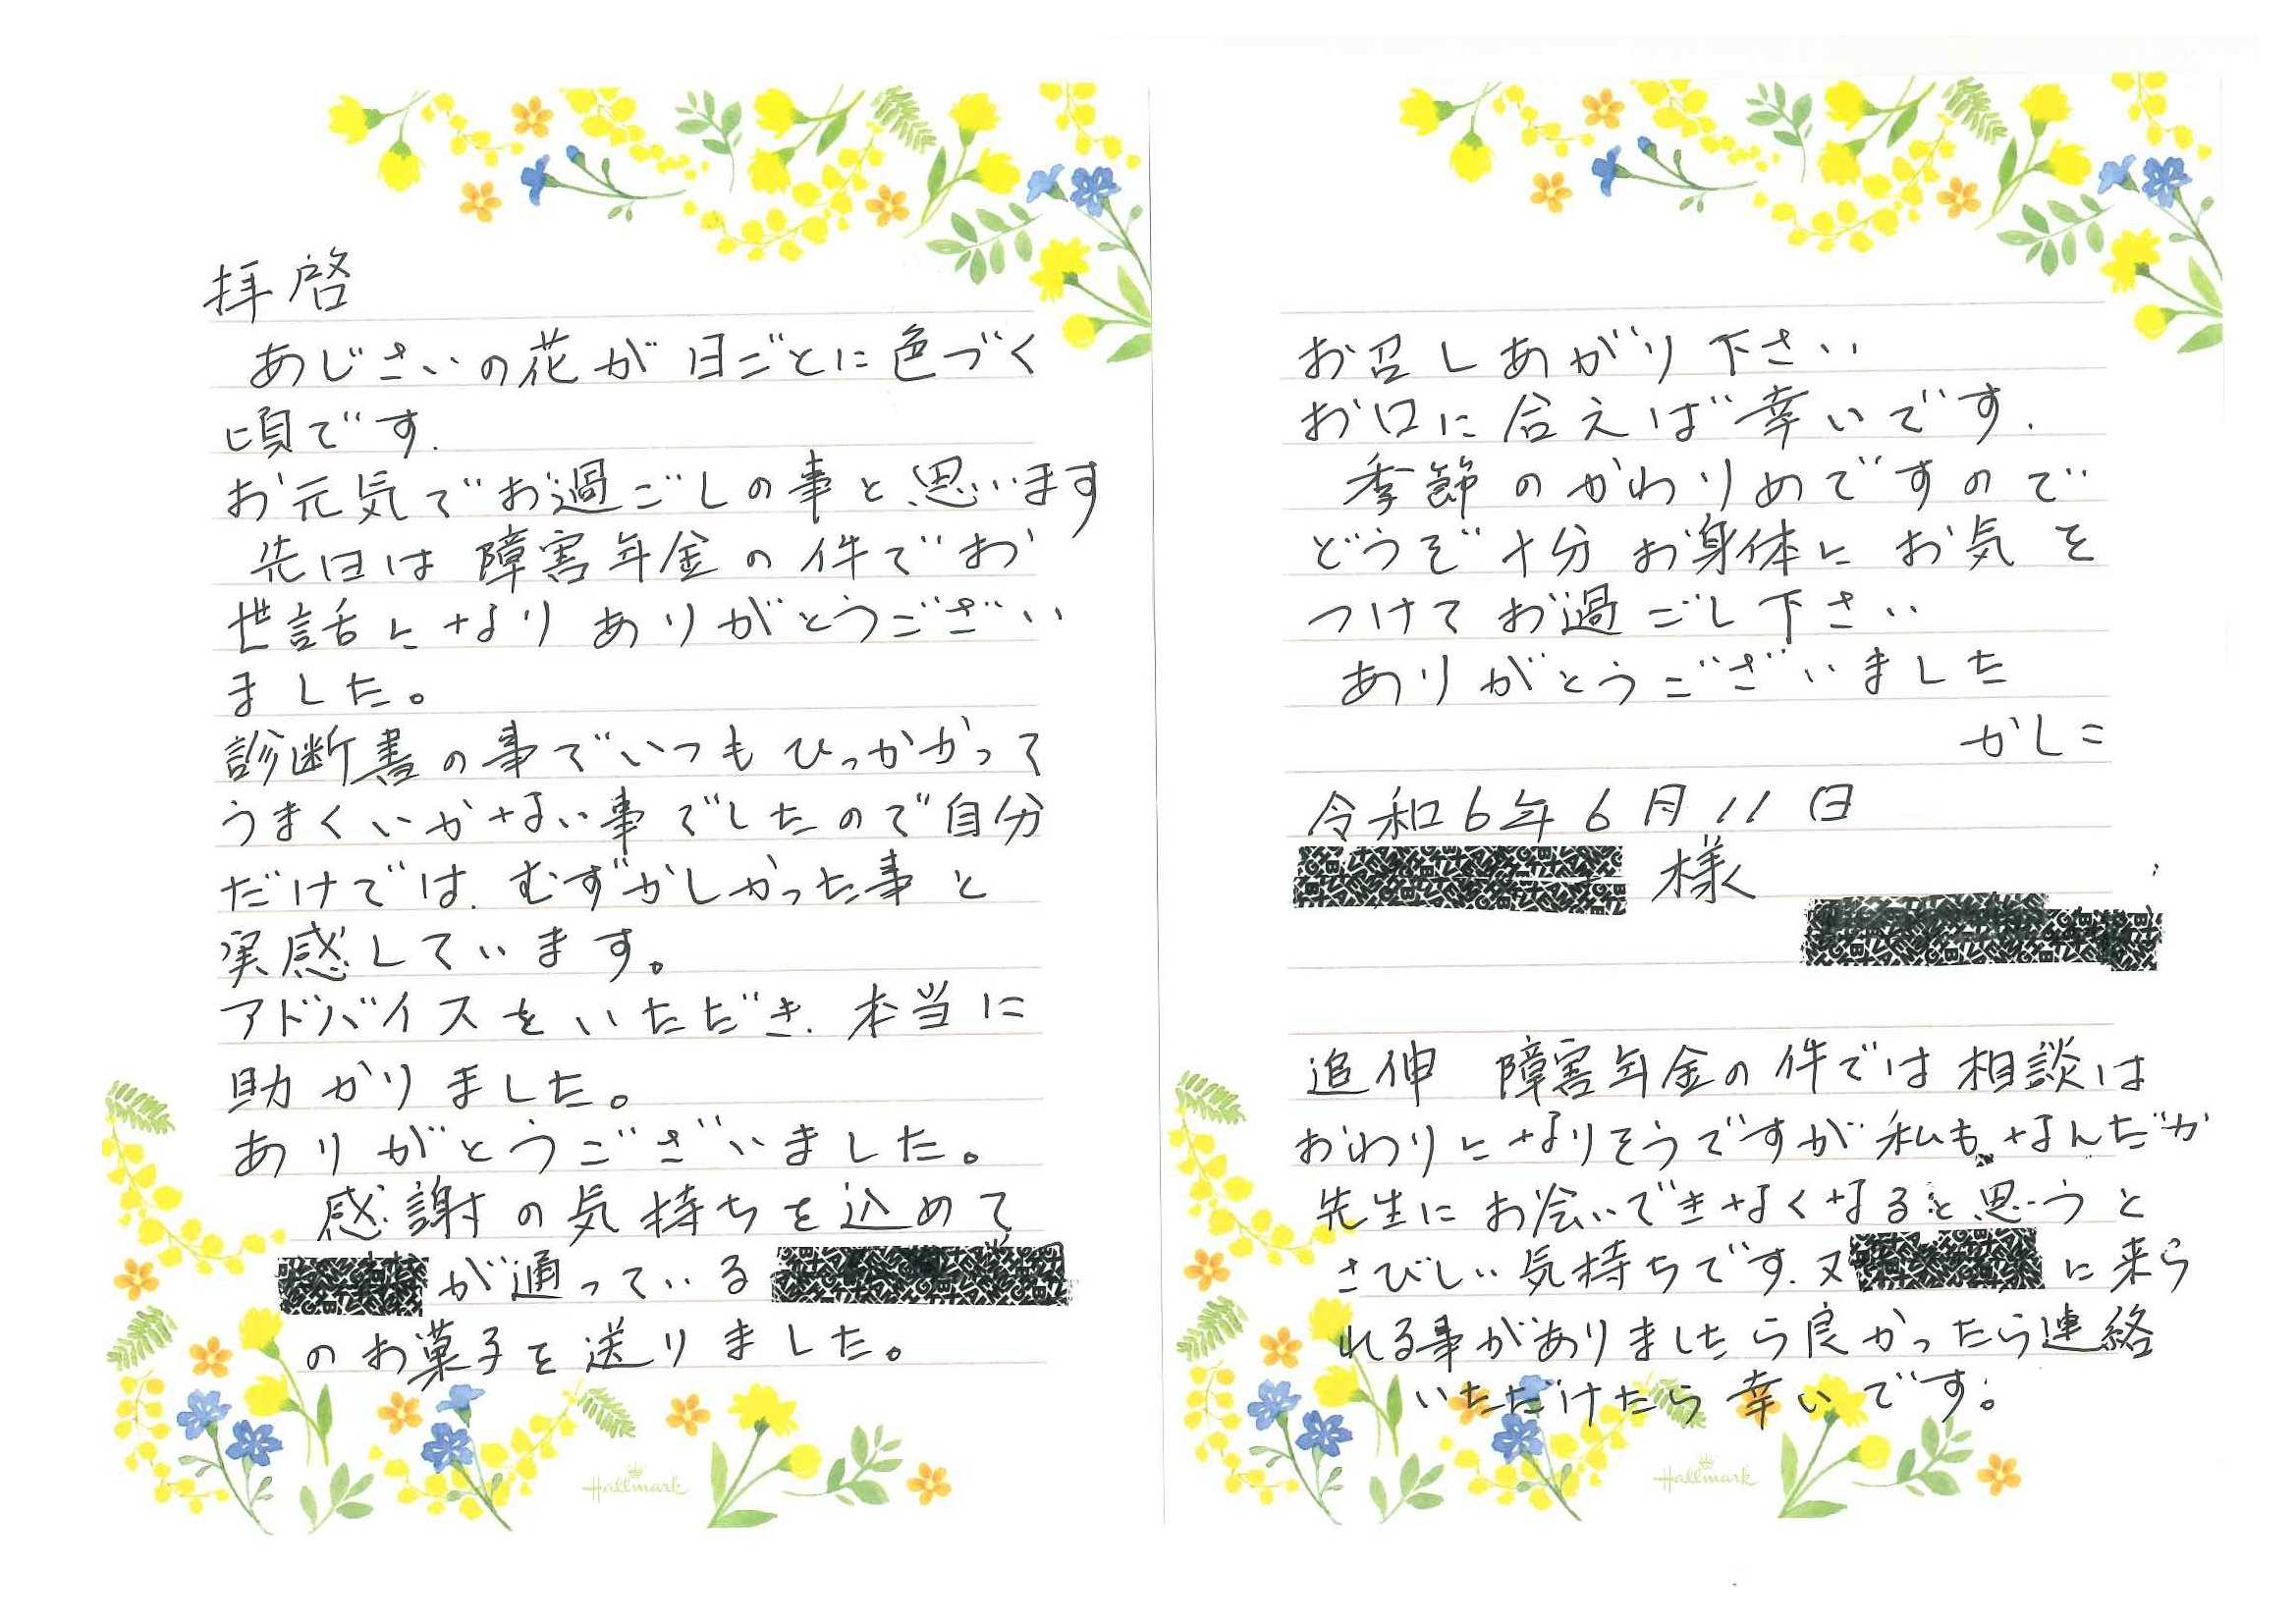 拝啓
あじさいの花が日ごとに色づく
頃です.
お元気でお過ごしの事と思います
先日は障害年金の件でお
世話になりありがとうござい
ました。
診断書の事でいつもひっかかって
うまくいかない事でしたので自分
だけでは、むずかしかった事と
実感しています。
アドバイスをいただき、本当に
助かりました。
ありがとうございました。
感謝の気持ちを込めて
が通っている
のお菓子を送りました。
Hallmark
お召しあがり下さい
お口に合えば幸いです.
季節のかわりめですので
どうぞ十分お身体にお気を
つけてお過ごし下さい
ありがとうございました
かしこ
令和6年6月11日
様
追伸 障害年金の件では相談は
おわりになりそうですが私も、なんだか
先生にお会いできなくなると思うと
さびしい気持ちです.又 に来ら
れる事がありましたら良かったら連絡
いただけたら幸いです。
Hallmark